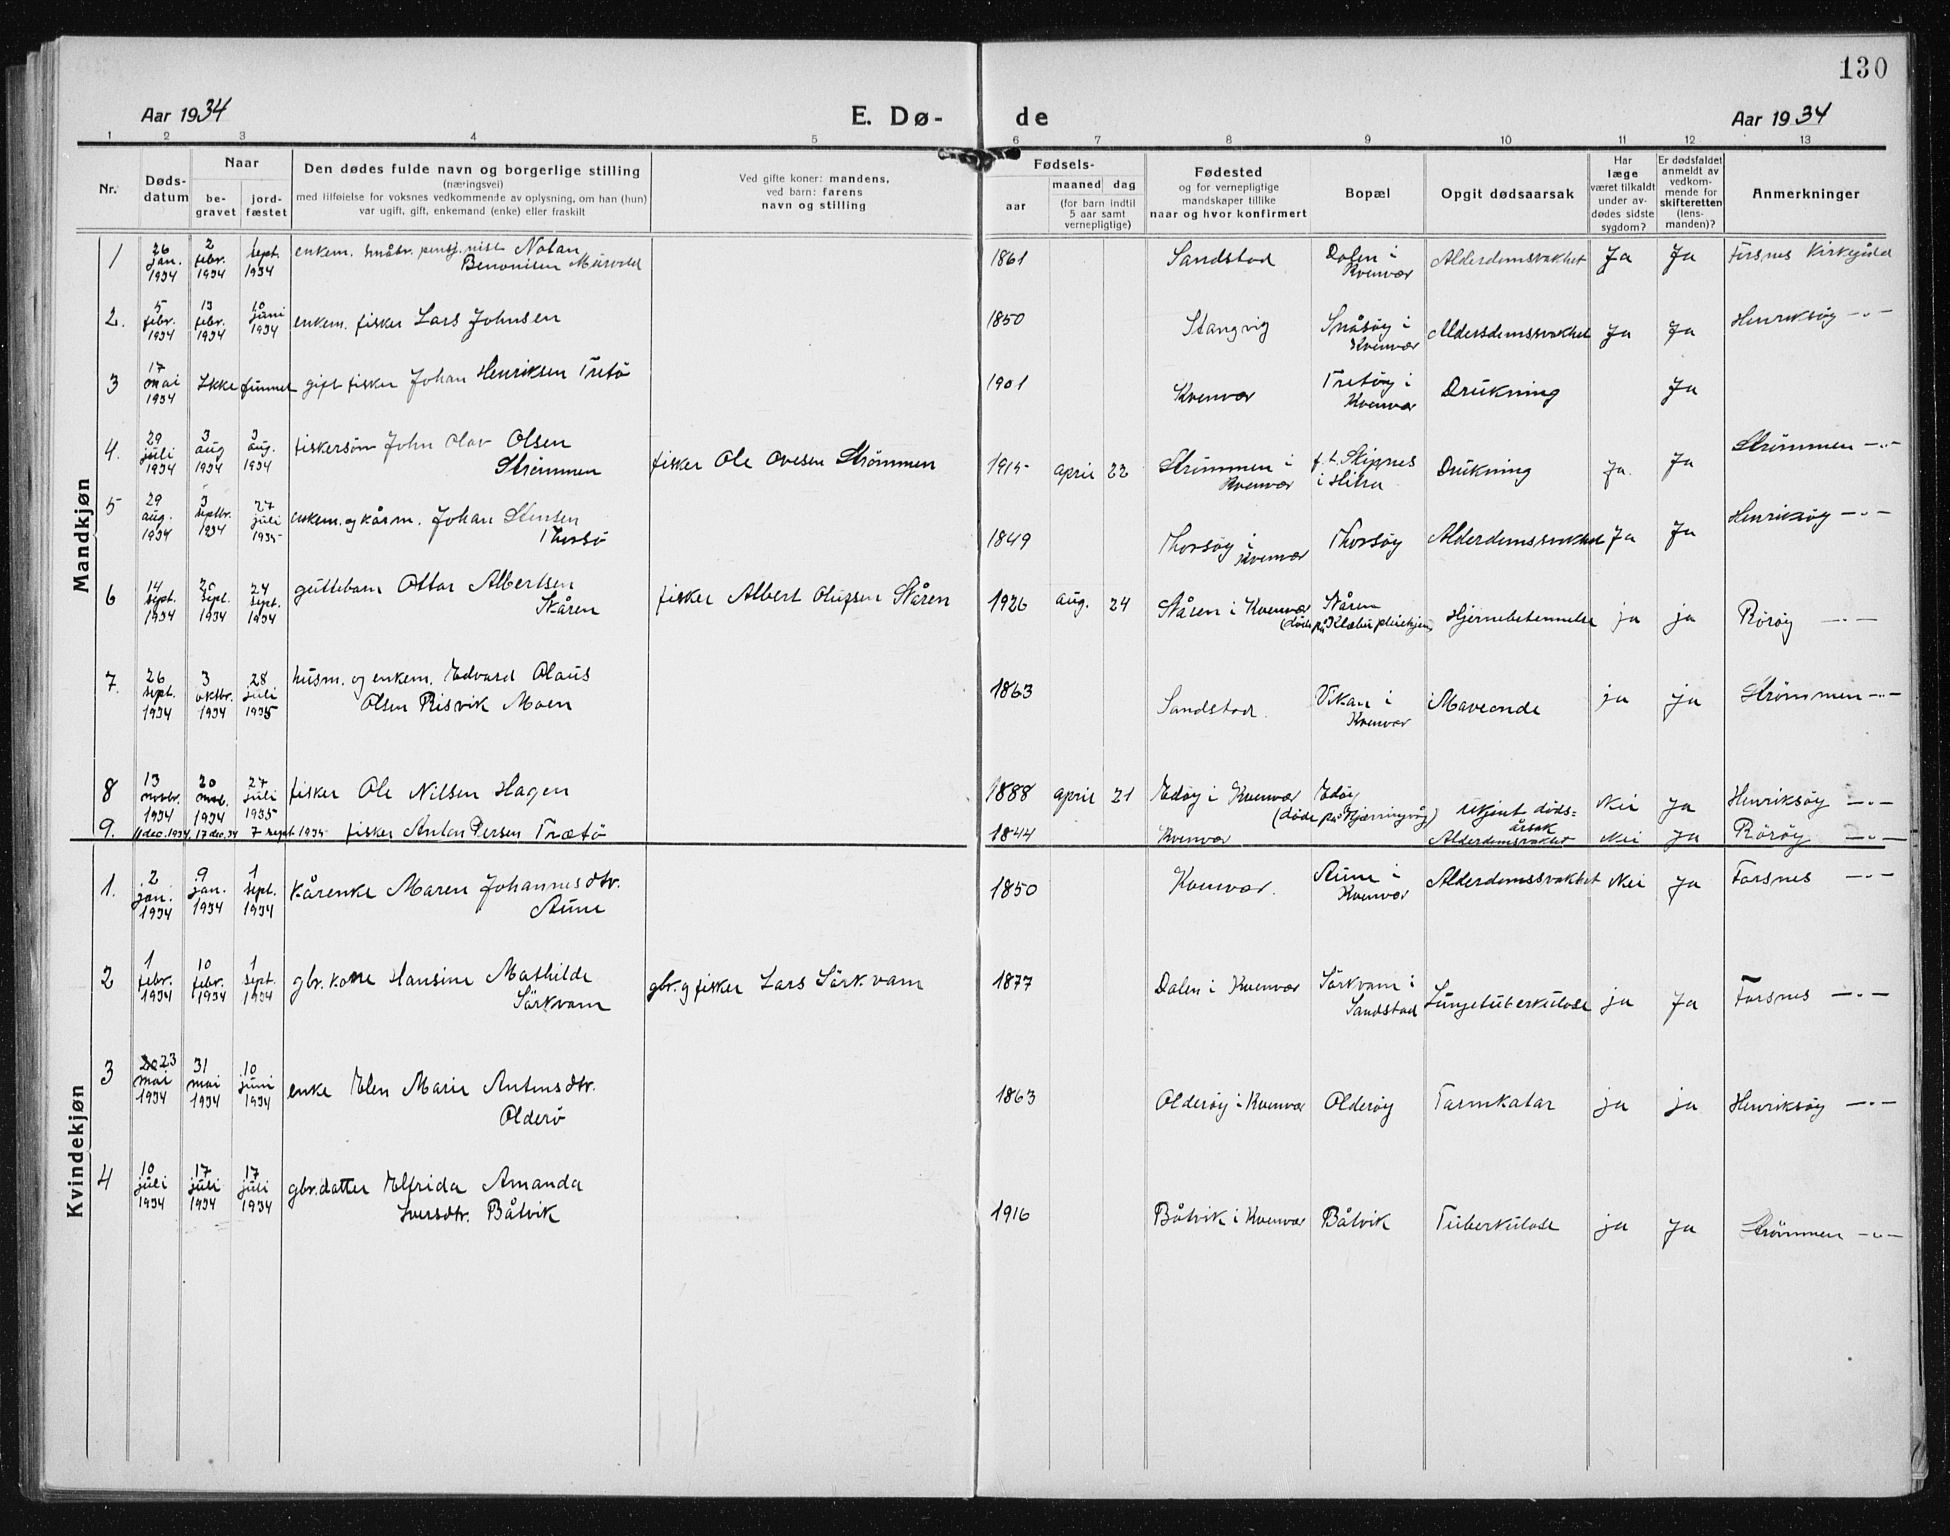 130
Aar 1934
E. Dø-
de
Aar 1934
1 2 3 4 5 6 7 8 9 10 11 12 13
Nr.
Døds-
datum
Naar
be-
gravet
jord-
fæstet
Den dødes fulde navn og borgerlige stilling
(næringsvei)
med tilføielse for voksnes vedkommende av oplysning, om han (hun)
var ugift, gift, enkemand (enke) eller fraskilt
Ved gifte koner: mandens,
ved barn: farens
navn og stilling
Fødsels-
aar
maaned dag
(for barn indtil
5 aar samt
vernepligtige)
Fødested
og for vernepligtige
mandskaper tillike
naar og hvor konfirmert
Bopæl
Opgit dødsaarsak
Har
læge
været tilkaldt
under av-
dødes sidste
sygdom?
Er dødsfaldet
anmeldt av
vedkom-
mende for
skifteretten
(lens-
manden)?
Anmerkninger
Mandkjøn
1 26 jan. 1934 2 febr. 1934 1 sept. 1934 enkem. småbr. Notan 1861 Sandstad Dalen i Alderdomsvakhet Ja Ja Forsnes Kirkegård
Benonisen Kvenvær
2. 5 febr. 1934 13 febr. 1934 10 juni 1934 enkem. fisker Lars Johnsen 1850 Stangvig Småsøy i Aldersdomssvakhet Ja Ja Henriksøy -"-
Kvenvær
3 17 mai 1934 Ikke funnet gift fisker Johan Henriksen Tretø 1901 Kvenvær Tretøy i Drukning Ja
Kvenvær
4. 29 juli 1934 3 aug 1934 3 aug. 1934 fiskersøn John Olav Olsen
Strømmen fisker Ole Ovesen Strømmen 1915 april 22 Strømmen i f.t. Skipnes Drukning Ja. Ja Strømmen -"-
Kvenvær i Hitra
5 29 aug. 1934 3 septbr. 1934 27 juli 1935 enkem. og kårm. Johan Stensen 1849 Thorsøy i Thorsøy Alderdomssvakhet Ja Ja Henriksøy -"-
Thorsø Kvenvær
6 14 sept. 1934 25 sept. 1934 24 sept. 1934 guttebarn Ottar Albertsen
Skåren fisker Albert Olufsen Skåren 1926 aug. 24 Skåren i Kvenvær Skåren Hjernebetennelse ja ja Rörøy -"-
(døde på Klæbu pleiehjem)
7. 26 sept. 1934 3 oktbr. 1934 28 juli 1935 husm. og enkem. Edvard Olaus 1863 Sandstad. Vikan i Maveonde ja ja Strømmen -"-
Olsen Risvik Moen Kvenvær
8 13 novbr. 1934 20 novb. 1934 27 juli 1935 fisker Ole Nilsen Hagen 1888 april 21 Edøy i Kvenvær Edøy ukjent døds- Nei Ja Henriksøy -"-
(døde på Kjærringvåg) årsak
9. 11 dec. 1934 17 dec. 34 7 sept 1935 fisker Anton Persen Trætø 1844 Kvenvær Alderdomsvakhet Nei Ja Rörøy -"-
Kvindekjøn
1. 2 jan. 1934 9 jan. 1934 1 sept. 1934 Kårenke Maren Johannesdtr. 1850 Kvenvær. Aune i Alderdomssvakhet Nei Ja Forsnes -"-
Aune Kvenvær
2 1 febr. 1934 10 febr. 1934 1 sept. 1934 gbr.kone Hansine Mathilde gbr. og fisker Lars Sörkvam 1877 Dalen i Kvenvær Sörkvam i Lungetuberkulose ja Ja Forsnes -"-
Sörkvam Sandstad
3 23 mai 1934 31 mai 1934 10 juni 1934 enke Elen Marie Antonsdtr. 1863 Olderøy i Kvenvær Olderøy Tarmkatar ja ja Henriksøy -"-
Olderø
4 10 juli 1934 17 juli 1934 17 juli 1934 gbr.datter Elfrida Amanda 1916 Båtvik i Kvenvær Båtvik Tuberkulose ja Ja Strømmen -"-
Iversdtr. Båtvik